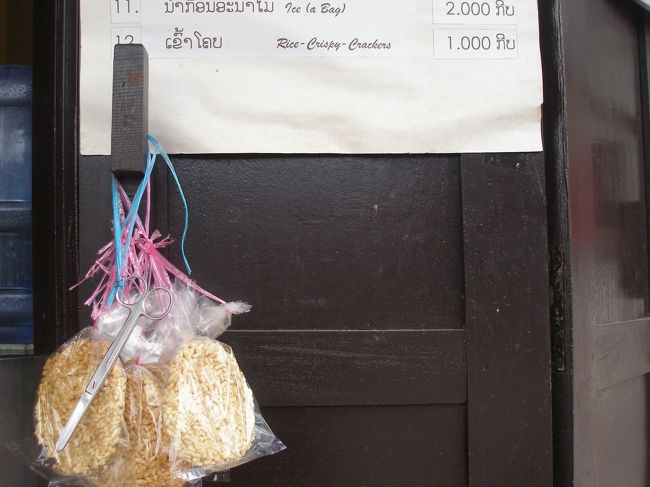 11. ນ້ຳກ້ອນອະນາໄມ Ice (a Bag) 2.000 ກີບ
12 ເຂົ້າໂຄບ Rice-Crispy-Crackers 1.000 ກີບ